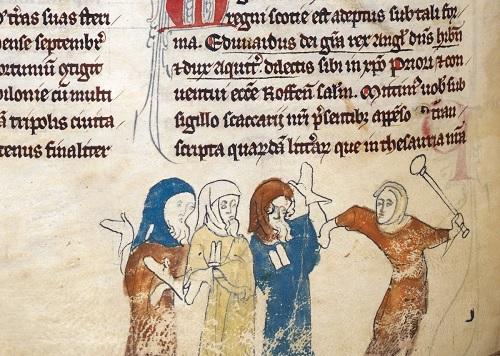 tras suas steri
bense septembr̄
ortuniū ꝯtigit
ilonie cū multi
ā tripolis ciuita
tenus finaliter
regni scotie est adeptus sub tali for
ma. Edwardus dei gr̄a rex angl' dn̄s hib'n
⁊ dux aquit'. dilectis sibi in xp̄o Priori ⁊ con
uentui ecc̄e Roffen̄ salm̄. Mittim' uob' sub
sigillo scaccarij nr̄i p̄sentib; app̄so. Tran
scripta quarūdā litt̄ar̄ que in thesauria nr̄a